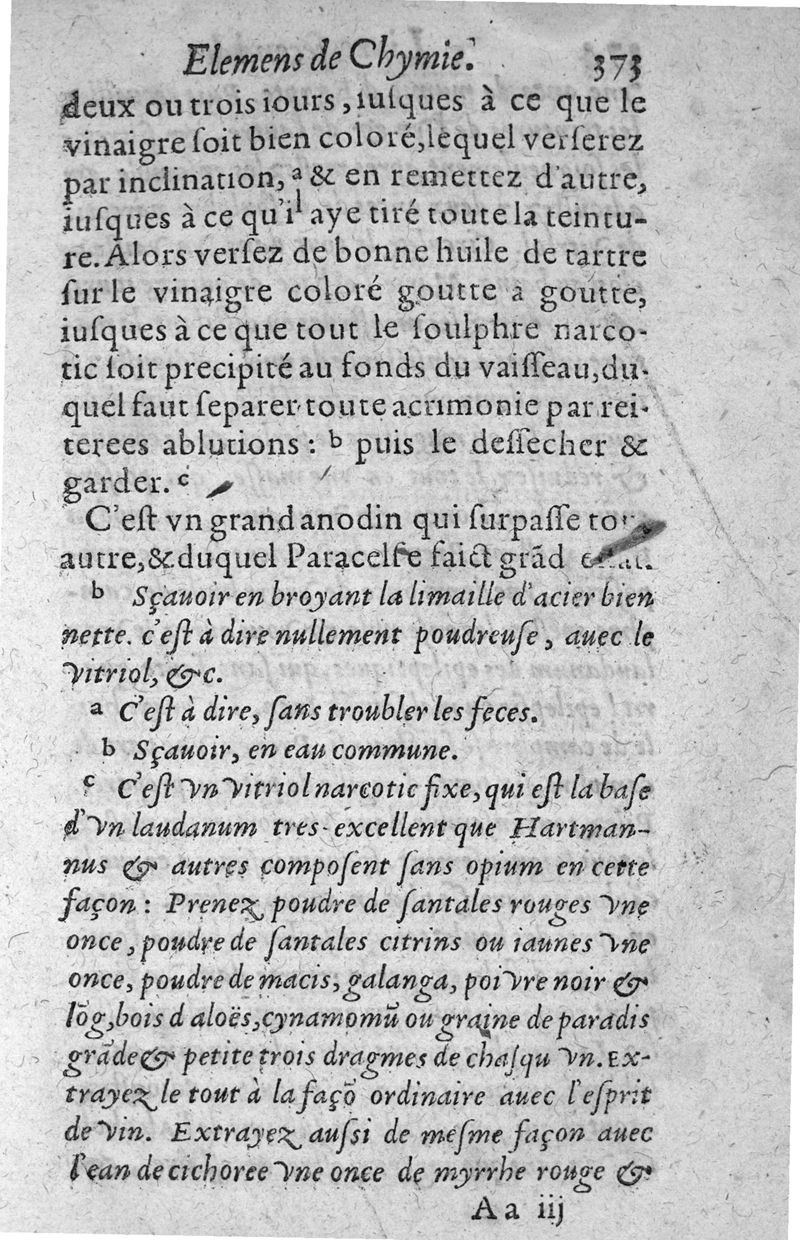 Elemens de Chymie. 373
deux ou trois iours, iuſques à ce que le
vinaigre ſoit bien coloré, lequel verſerez
par inclination, ª & en remettez d'autre,
iuſques à ce qu'il aye tiré toute la teintu-
re. Alors verſez de bonne huile de tartre
ſur le vinaigre coloré goutte à goutte,
iuſques à ce que tout le ſoulphre narco-
tic ſoit precipité au fonds du vaiſſeau, du-
quel faut ſeparer toute acrimonie par rei-
terees ablutions : b puis le deſſecher &
garder. c
C'eſt vn grand anodin qui ſurpaſſe
autre, & duquel Paracelſe faict grãd
b Sçauoir en broyant la limaille d'acier bien
nette. c'eſt à dire nullement poudreuſe, auec le
vitriol, &c.
a C'eſt à dire, ſans troubler les feces.
b Sçauoir, en eau commune.
c C'eſt vn vitriol narcotic fixe, qui eſt la baſe
d'vn laudanum tres-excellent que Hartman-
nus & autres compoſent ſans opium en cette
façon : Prenez poudre de ſantales rouges vne
once, poudre de ſantales citrins ou iaunes vne
once, poudre de macis, galanga, poivre noir &
lõg, bois d aloës, cynamomũ ou graine de paradis
grãde & petite trois dragmes de chaſqu vn. Ex-
trayez le tout à la façõ ordinaire auec l'eſprit
de vin. Extrayez auſſi de meſme façon auec
l'eau de cichoree vne once de myrrhe rouge &
A a iij